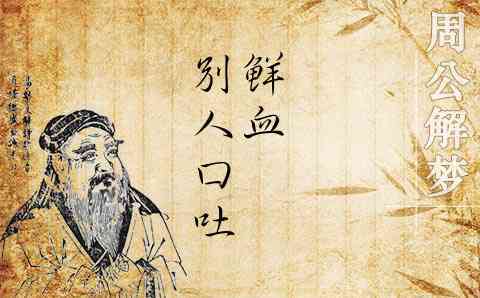 周公解梦
鲜血
别人口吐